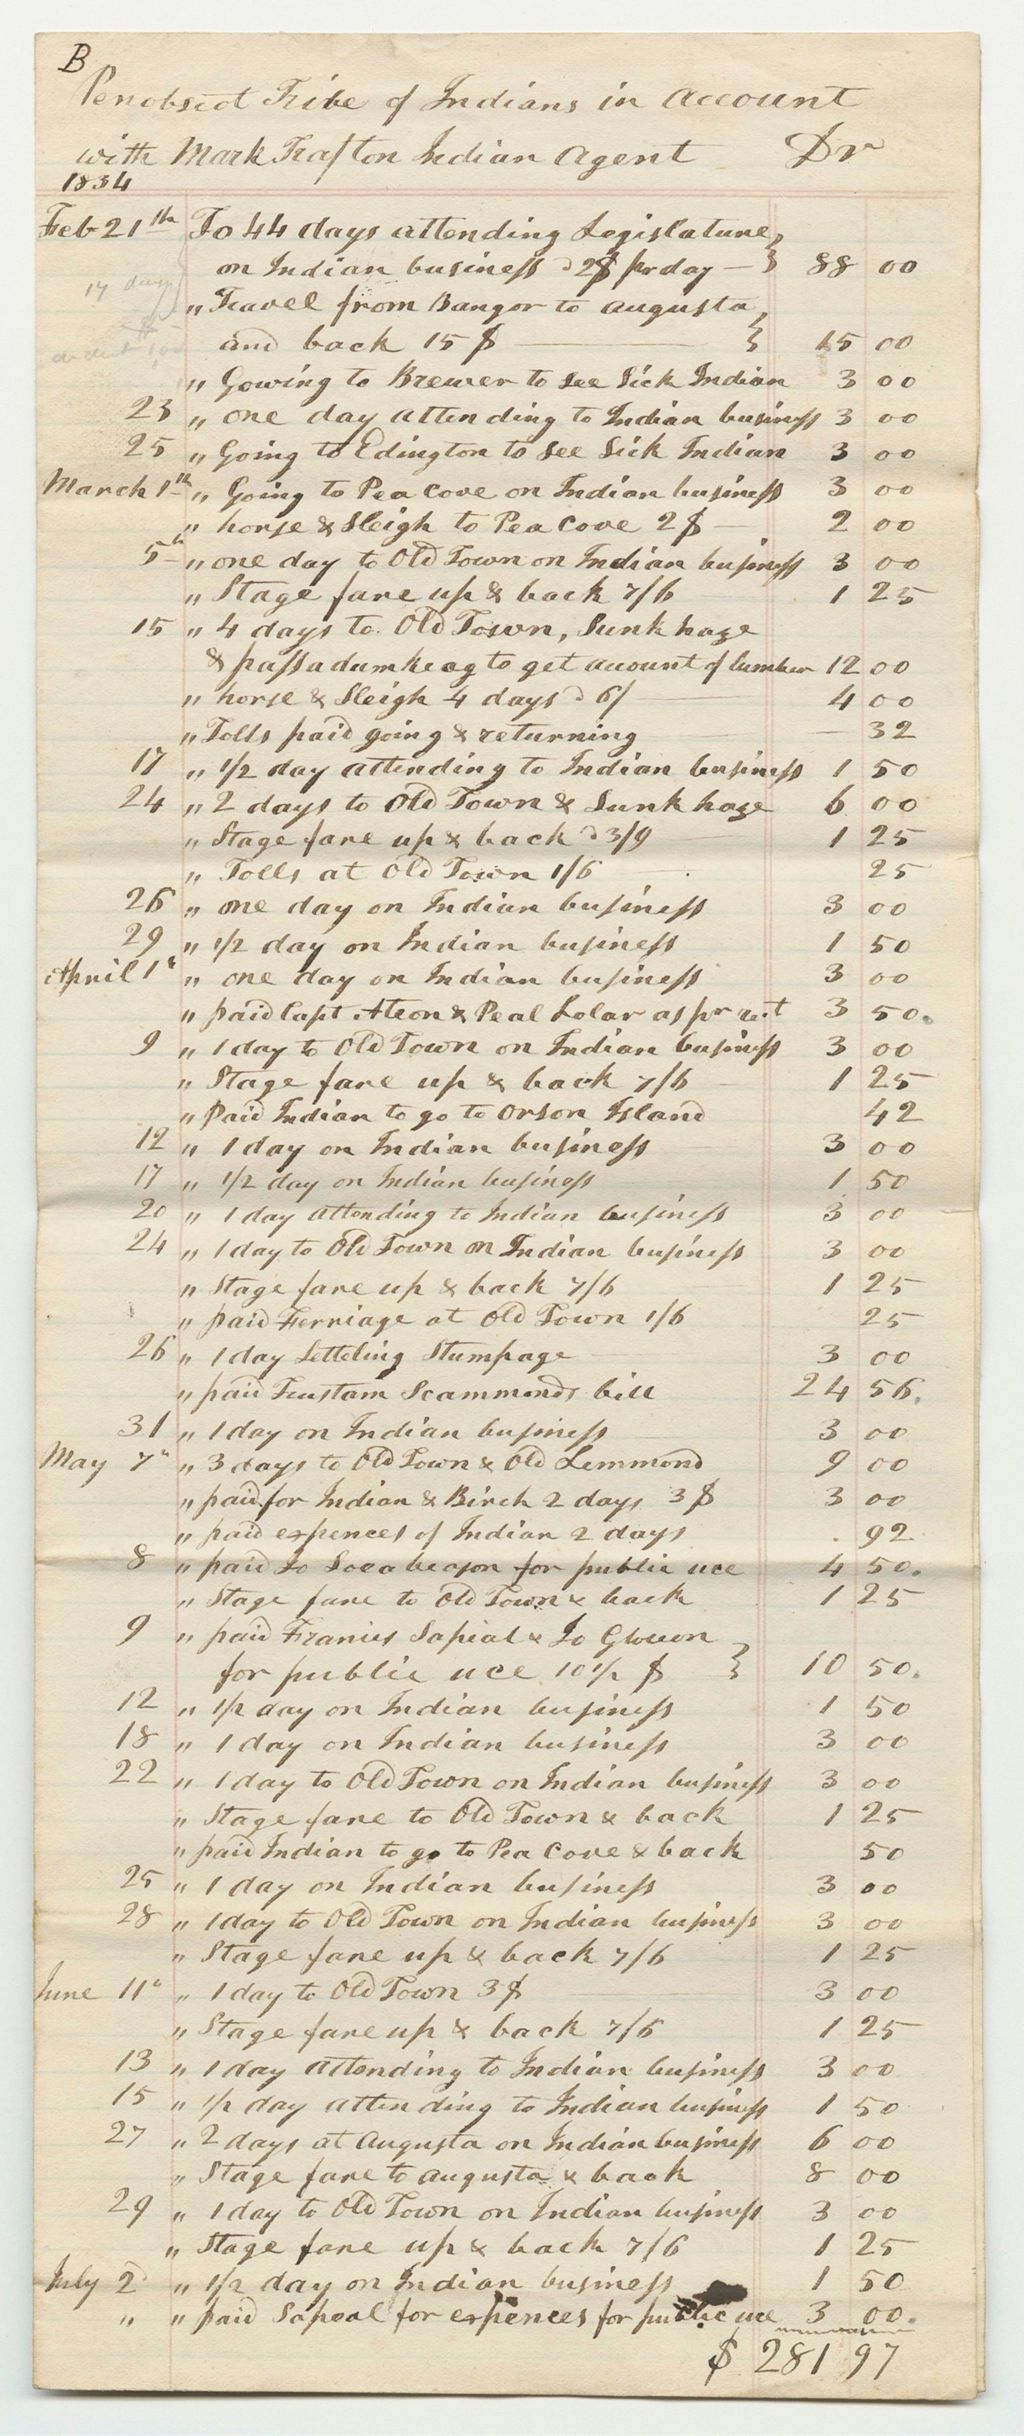 B
Penobscot Tribe of Indians in account
with Mark Trafton Indian Agent Dr
1834
Feb 21th To 44 days attending Legislature,
on Indian business @ 2$ pr day — } 88 00
17 days
" Travel from Bangor to augusta,
and back 15 $ } 15 00
" Gowing to Brewer to see Sick Indian 3 00
23 " one day attending to Indian business 3 00
25 " Going to Edington to see Sick Indian 3 00
March 1th " Going to Pea Cove on Indian business 3 00
" horse & Sleigh to Pea Cove 2 $ 2 00
5th " one day to Old Town on Indian business 3 00
" Stage fare up & back 7/6 1 25
15 " 4 days to Old Town, Sunkhaze
& passadumkeag to get acount of lumber 12 00
" horse & Sleigh 4 days @ 6/ 4 00
" Tolls paid going & returning 32
17 " 1/2 day attending to Indian business 1 50
24 " 2 days to Old Town & Sunkhaze 6 00
" Stage fare up & back @ 3/9 1 25
" Tolls at Old Town 1/6 25
26 " one day on Indian business 3 00
29 " 1/2 day on Indian business 1 50
April 1st " one day on Indian business 3 00
" paid Capt Ateon & Peal Lolar as pr rect 3 50.
9 " 1 day to Old Town on Indian business 3 00
" Stage fare up & back 7/6 1 25
" Paid Indian to go to Orson Island 42
12 " 1 day on Indian business 3 00
17 " 1/2 day on Indian business 1 50
20 " 1 day attending to Indian business 3 00
24 " 1 day to Old Town on Indian business 3 00
" Stage fare up & back 7/6 1 25
" paid Ferriage at Old Town 1/6 25
26 " 1 day Setteling Stumpage 3 00
" paid Tustam Scammonds bill 24 56.
31 " 1 day on Indian business 3 00
May 7th " 3 days to Old Town & Old Lemmond 9 00
" paid for Indian & Birch 2 days 3 $ 3 00
" paid expences of Indian 2 days 92
8 " paid Jo Socabeason for public uce 4 50.
" Stage fare to Old Town & back 1 25
9 " paid Francis Sapial & Jo Glowon
for public uce 10 1/2 $ } 10 50.
12 " 1/2 day on Indian business 1 50
18 " 1 day on Indian business 3 00
22 " 1 day to Old Town on Indian business 3 00
" Stage fare to Old Town & back 1 25
" paid Indian to go to Pea Cove & back 50
25 " 1 day on Indian business 3 00
28 " 1 day to Old Town on Indian business 3 00
" Stage fare up & back 7/6 1 25
June 11th " 1 day to Old Town 3 $ 3 00
" Stage fare up & back 7/6 1 25
13 " 1 day attending to Indian business 3 00
15 " 1/2 day attending to Indian business 1 50
27 " 2 days at Augusta on Indian business 6 00
" Stage fare to augusta & back 8 00
29 " 1 day to Old Town on Indian business 3 00
" Stage fare up & back 7/6 1 25
July 2d " 1/2 day on Indian business 1 50
" " paid Sapeal for expences for public uce 3 00.
$ 281 97